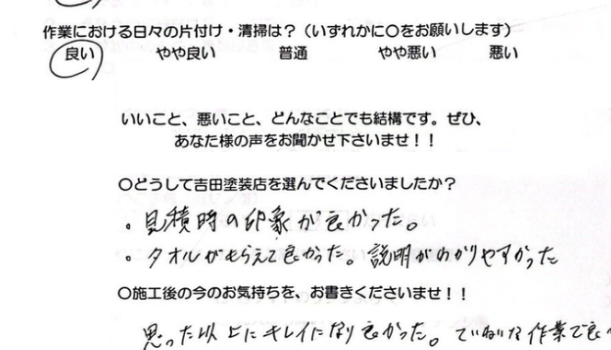 作業における日々の片付け・清掃は？（いずれかに〇をお願いします）
良い やや良い 普通 やや悪い 悪い
いいこと、悪いこと、どんなことでも結構です。ぜひ、
あなた様の声をお聞かせ下さいませ！！
〇どうして吉田塗装店を選んでくださいましたか？
・見積時の印象が良かった。
・タオルがもらえて良かった。説明がわかりやすかった
〇施工後の今のお気持ちを、お書きくださいませ！！
思った以上にキレイになり良かった。ていねいな作業で良